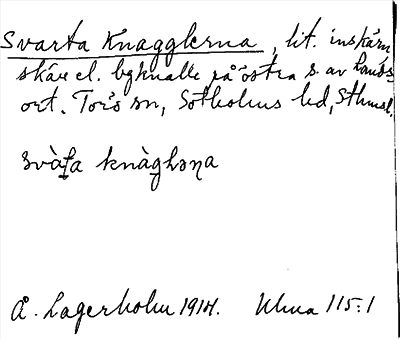 Svarta Knagglerna, lit. inskärn
skär el. bgknalle på östra s. av Lands-
ort. Torö sn, Sotholms hd, Sthmsl.
svàṯa knàgləṇa
Å. Lagerholm 1914. Ulma 115:1